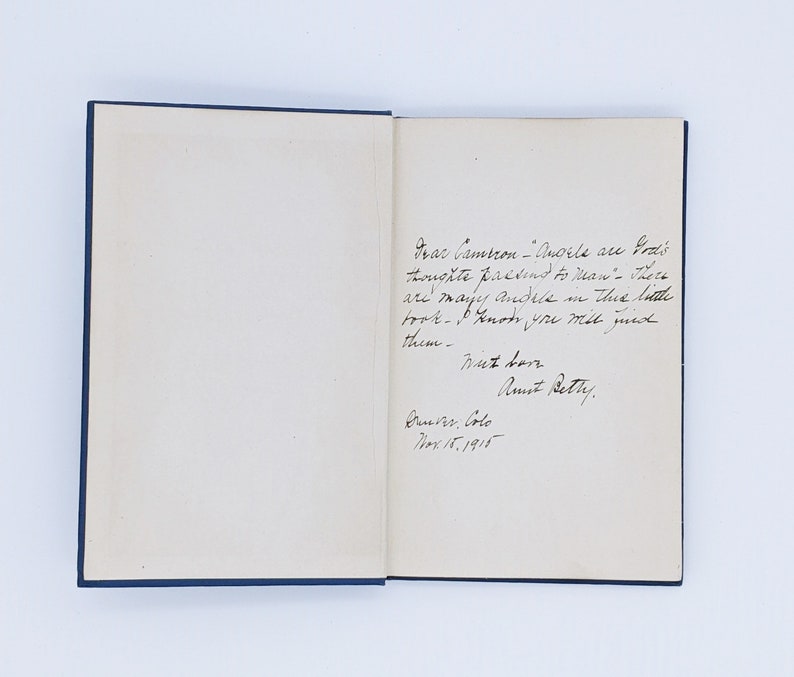 Dear Cameron - "Angels are God's
thoughts passing to Man" - There
are many angels in this little
book - I know you will find
them -
With love
Aunt Betty.
Denver, Colo
Nov. 15, 1915